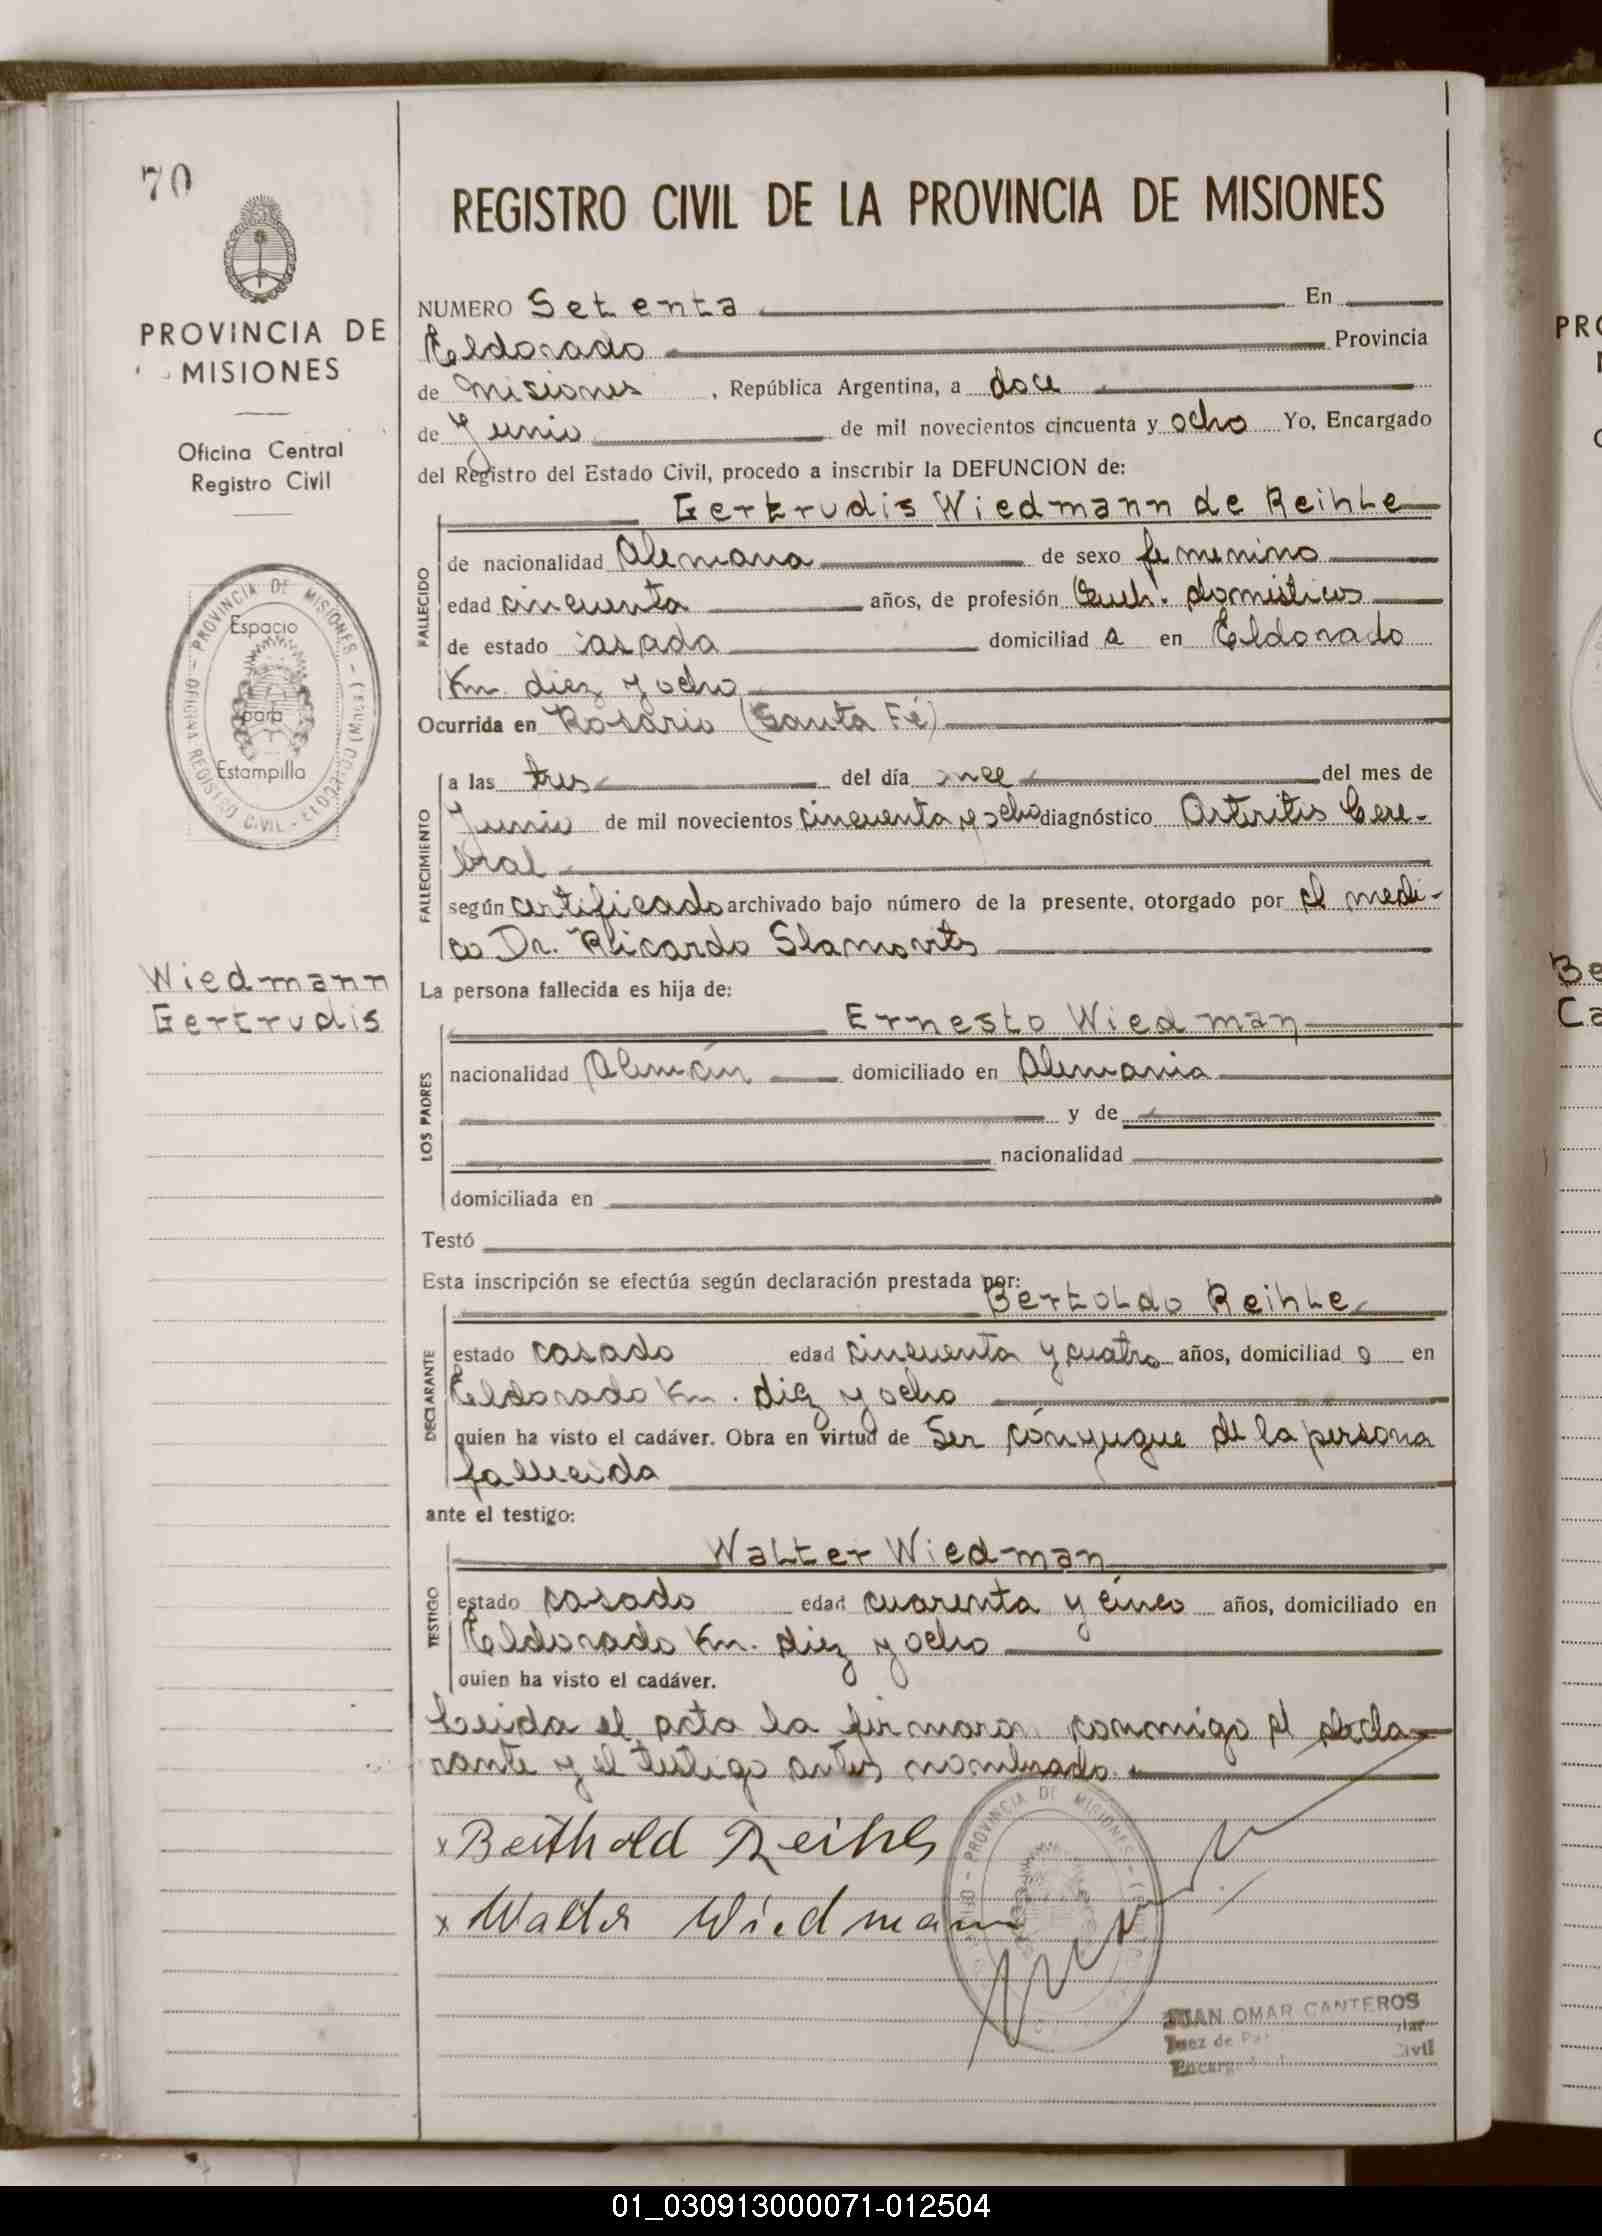 70
PROVINCIA DE
MISIONES
Oficina Central
Registro Civil
PROVINCIA DE MISIONES
OFICINA REGISTRO CIVIL - ELDORADO
Espacio
para
Estampilla
Wiedmann
Gertrudis
REGISTRO CIVIL DE LA PROVINCIA DE MISIONES
NUMERO Setenta En
Eldorado Provincia
de Misiones , República Argentina, a doce
de Junio de mil novecientos cincuenta y ocho Yo, Encargado
del Registro del Estado Civil, procedo a inscribir la DEFUNCION de:
FALLECIDO
Gertrudis Wiedmann de Reihle
de nacionalidad Alemana de sexo femenino
edad cincuenta años, de profesión Queh. domésticos
de estado casada domiciliad a en Eldorado
Km. diez y ocho
Ocurrida en Rosario (Santa Fé)
FALLECIMIENTO
a las tres del día once del mes de
Junio de mil novecientos cincuenta y ocho diagnóstico Arteritis Cere-
bral
según certificado archivado bajo número de la presente, otorgado por el medi-
co Dr. Ricardo
La persona fallecida es hija de:
LOS PADRES
Ernesto Wiedman
nacionalidad Alemán domiciliado en Alemania
y de
nacionalidad
domiciliada en
Testó
Esta inscripción se efectúa según declaración prestada por:
DECLARANTE
Bertoldo Reihle
estado casado edad cincuenta y cuatro años, domiciliad o en
Eldorado Km. diez y ocho
quien ha visto el cadáver. Obra en virtud de Ser cónyugue de la persona
fallecida
ante el testigo:
TESTIGO
Walter Wiedman
estado casado edad cuarenta y cinco años, domiciliado en
Eldorado Km. diez y ocho
quien ha visto el cadáver.
Leida el acta la firmaron conmigo el decla-
rante y el testigo antes nombrado
x Berthold Reihle
x Walter Wiedmann
PROVINCIA DE MISIONES
JUAN OMAR CANTEROS
Juez de
Civil
PRO
Be
Ca
01_030913000071-012504